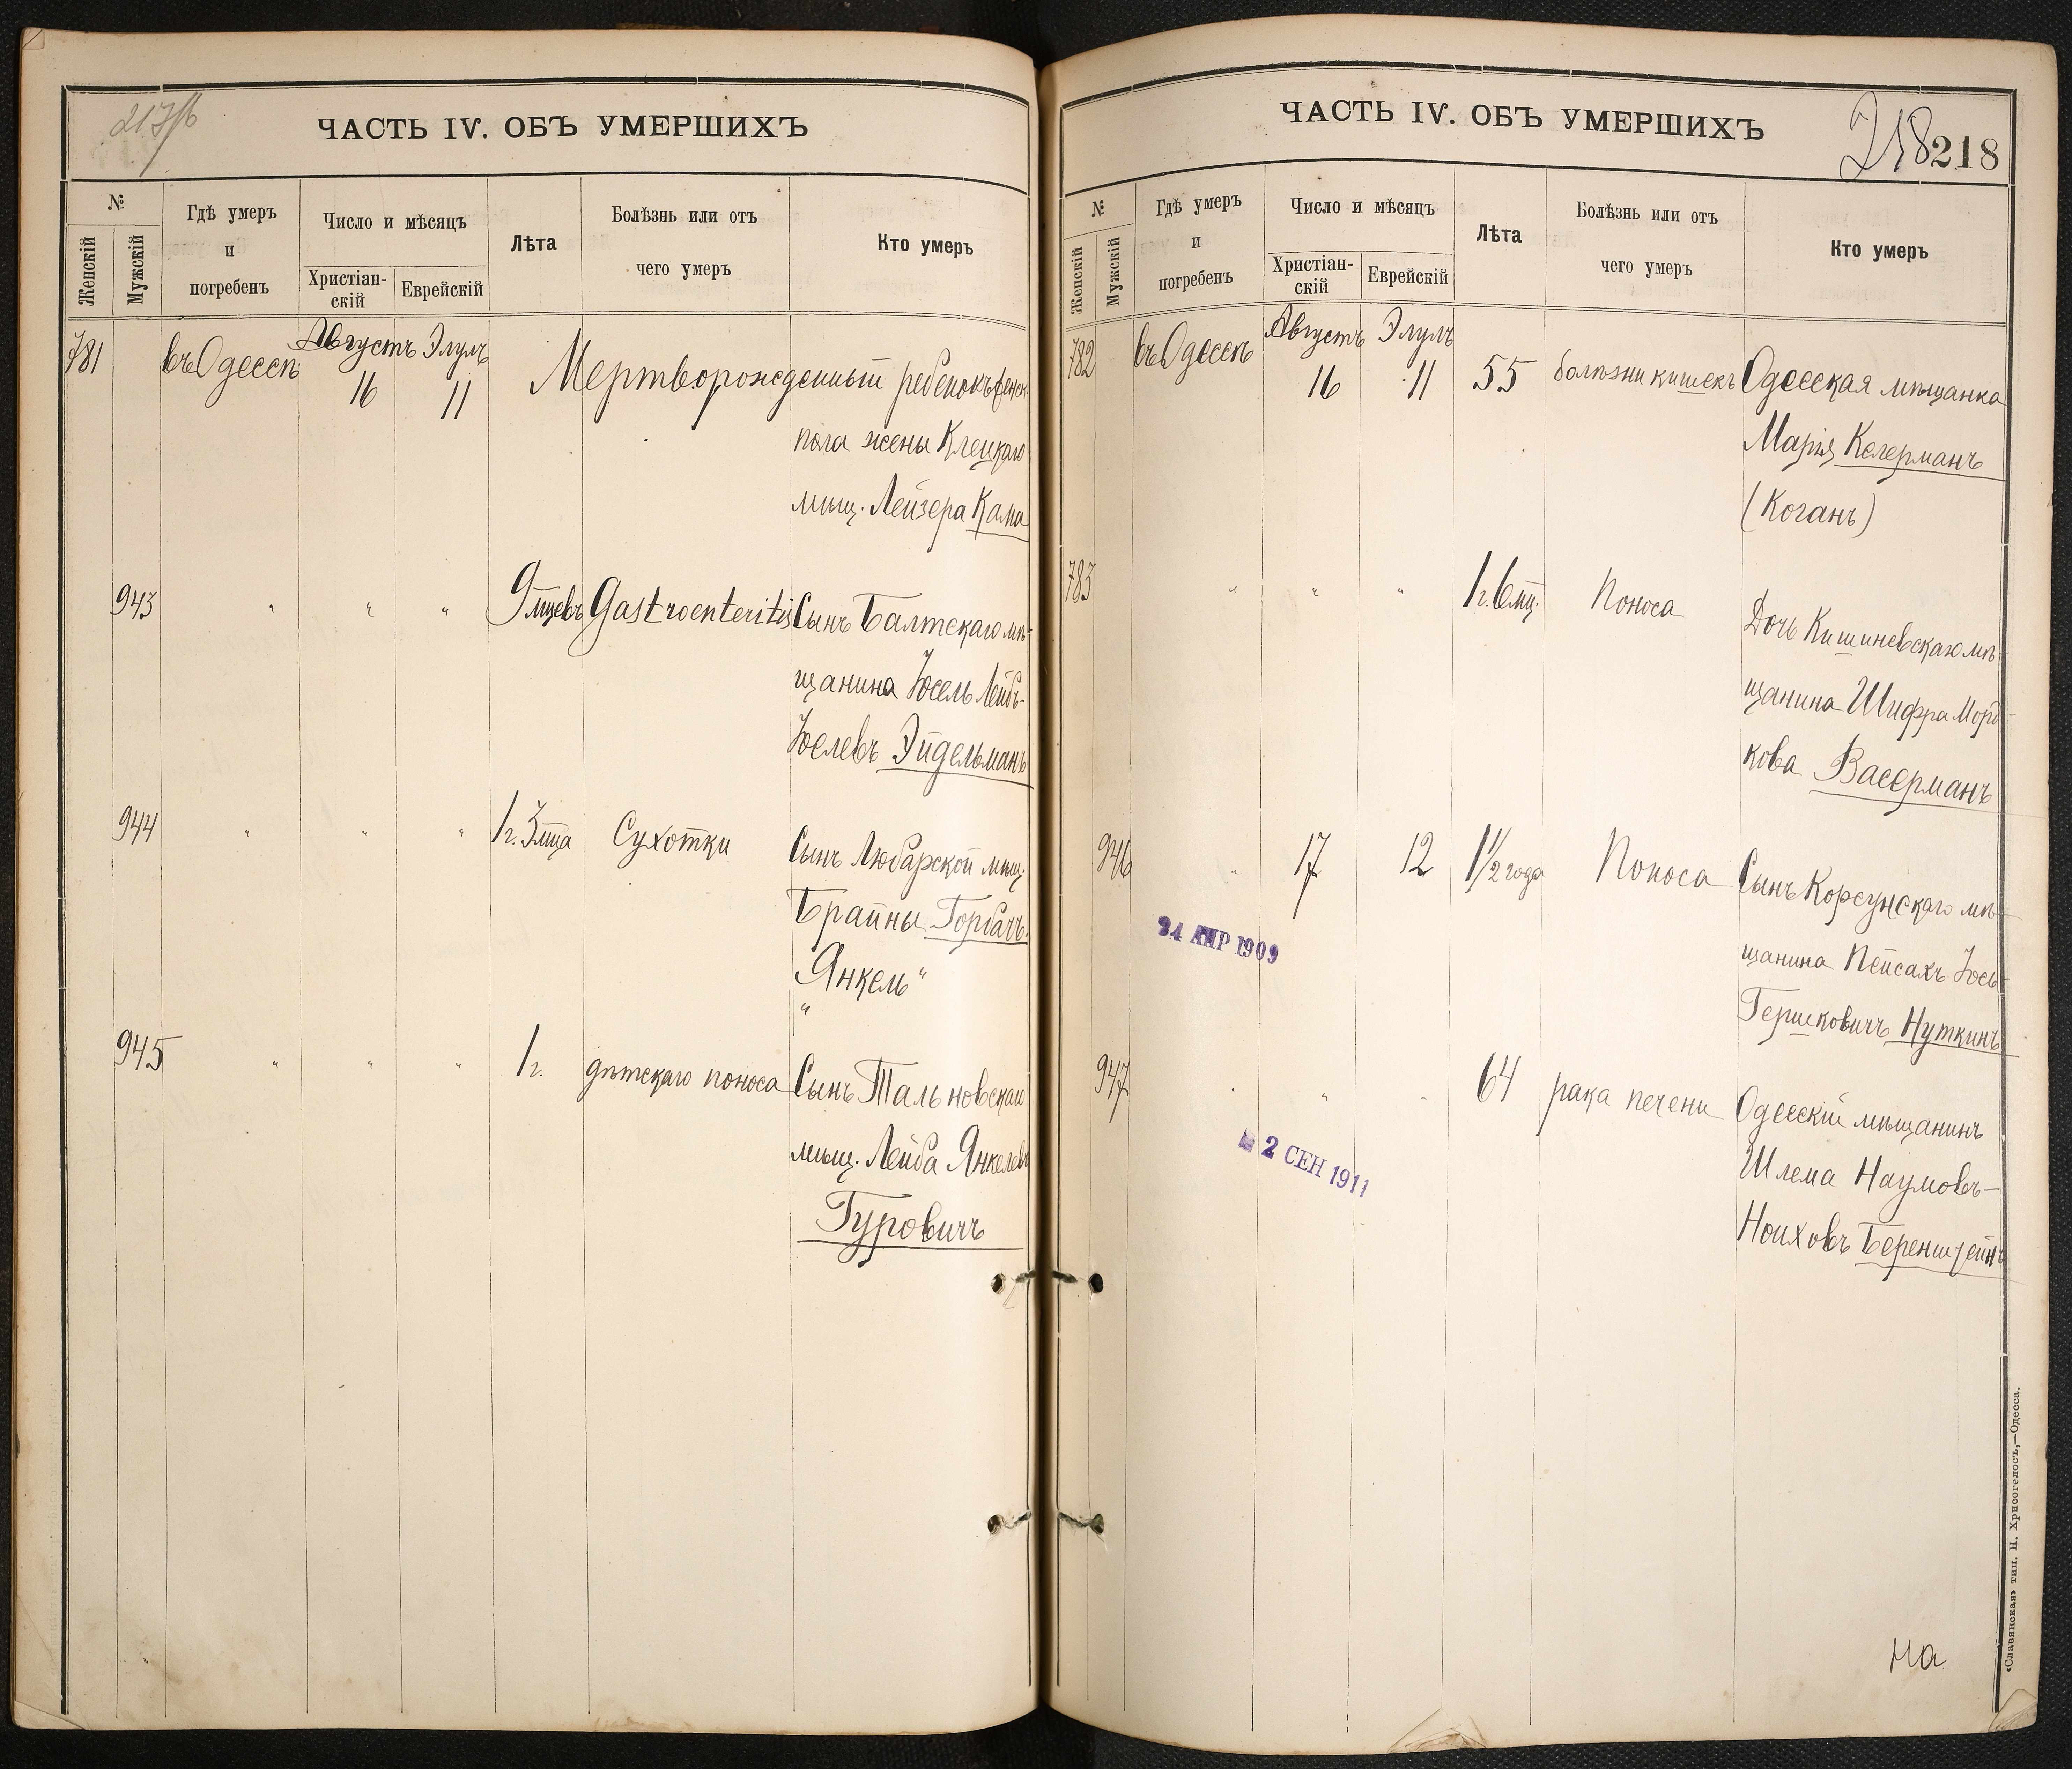 217/б
ЧАСТЬ IV. ОБЪ УМЕРШИХЪ
№
Женскій
Мужскій
Гдѣ умеръ
и
погребенъ
Число и мѣсяцъ
Христіан-
скій
Еврейскій
Лѣта
Болѣзнь или отъ
чего умеръ
Кто умеръ
781 въ Одессѣ Августъ 16 Элулъ 11 Мертворожденный ребенокъ женск.
пола жены Клецкаго
мѣщ. Лейзера Каца
943 " " " 9 мцевъ Gastroenteritis Сынъ Балтскаго мѣ-
щанина Іосель Лейбъ-
Іоселевъ Эйдельманъ
944 " " " 1 г. 3 мца Сухотки Сынъ Любарской мѣщ.
Брайны Горбачъ
"Янкель"
945 " " " 1 г. дѣтскаго поноса Сынъ Тальновскаго
мѣщ. Лейба Янкелевъ
Гуровичъ
ЧАСТЬ IV. ОБЪ УМЕРШИХЪ
218 218
№
Женскій
Мужскій
Гдѣ умеръ
и
погребенъ
Число и мѣсяцъ
Христіан-
скій
Еврейскій
Лѣта
Болѣзнь или отъ
чего умеръ
Кто умеръ
782 въ Одессѣ Августъ 16 Элулъ 11 55 болѣзни кишекъ Одесская мѣщанка
Марія Келерманъ
(Коганъ)
783 " " " 1 г. 6 мц. Поноса Дочь Кишиневскаго мѣ-
щанина Шифра Морд-
кова Васерманъ
946 " 17 12 1 1/2 года Поноса Сынъ Корсунскаго мѣ-
щанина Пейсахъ Іось-
Гершковичъ Нуткинъ
24 АПР 1909
947 " " " 64 рака печени Одесскій мѣщанинъ
Шлема Наумовъ-
Ноиховъ Беренштейнъ
2 СЕН 1911
на
«Славянская» тип. Н. Хрисогелосъ,—Одесса.